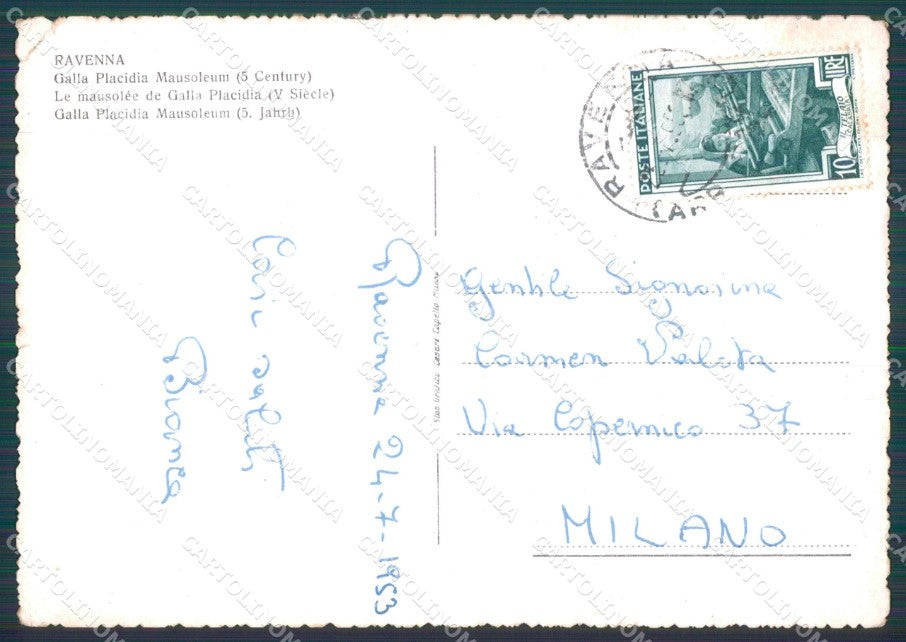 RAVENNA
Galla Placidia Mausoleum (5 Century)
Le mausolée de Galla Placidia (V Siècle)
Galla Placidia Mausoleum (5. Jahrh)
POSTE ITALIANE
LIRE
10
RAVENNA
Ravenna 24-7-1953
Cari saluti
Bianca
Gentile Signorina
Carmen Valota
Via Copernico 37
MILANO
CARTOLINOMANIA